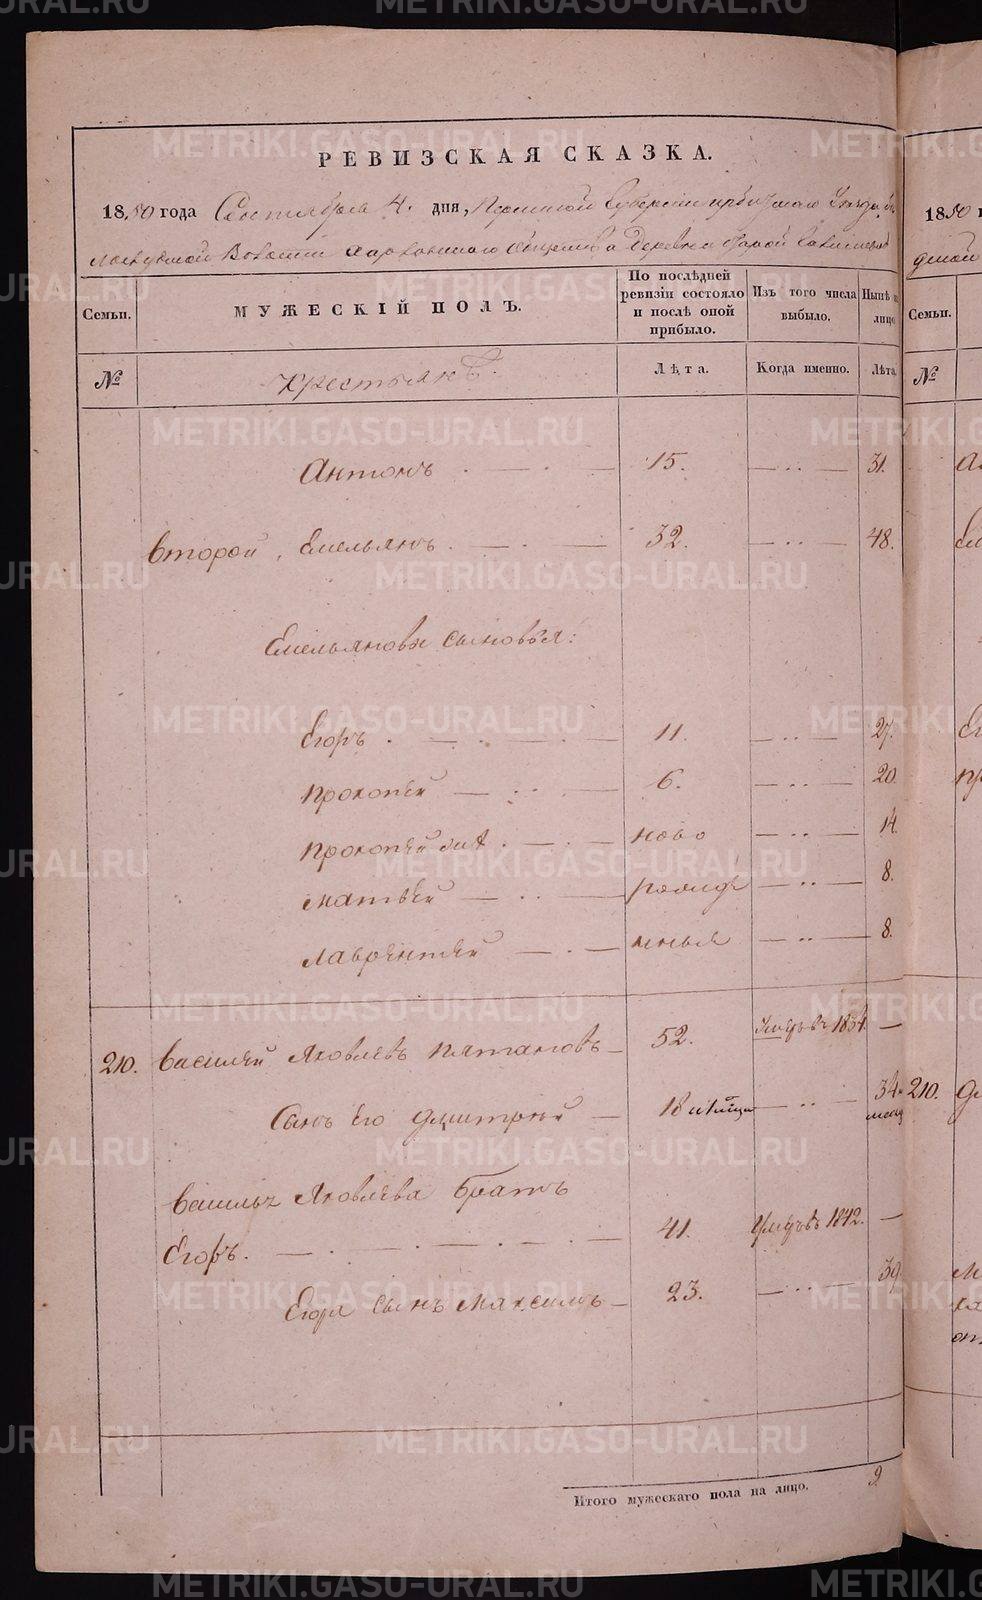 METRIKI.GASO-URAL.RU
РЕВИЗСКАЯ СКАЗКА.
1850 года Сентября 4. дня, Пермской Губернии Ирбитскаго Уезда
Волости Общества Деревни
Семьи.
МУЖЕСКІЙ ПОЛЪ.
По послѣдней ревизіи состояло и послѣ оной прибыло.
Изъ того числа выбыло.
Нынѣ на лицо
№
Крестьянъ.
Лѣта.
Когда именно.
Лѣта.
Антонъ 15. 31.
Второй, Емельянъ. 32. 48.
Емельяновы сыновья:
Егоръ. 11. 27.
Прокопей 6. 20.
Прокопей ново 14.
Матвей рожде 8.
Лаврентей нные 8.
210. Василей Яковлевъ Пятановъ 52. Умеръ въ 1834. —
Сынъ Его Дмитрей 18 34
Василья Яковлева братъ
Егоръ. 41. Умеръ въ 1842. —
Егора сынъ Максимъ 23. 39.
Итого мужескаго пола на лицо. 9
1850
Семьи.
№
210.